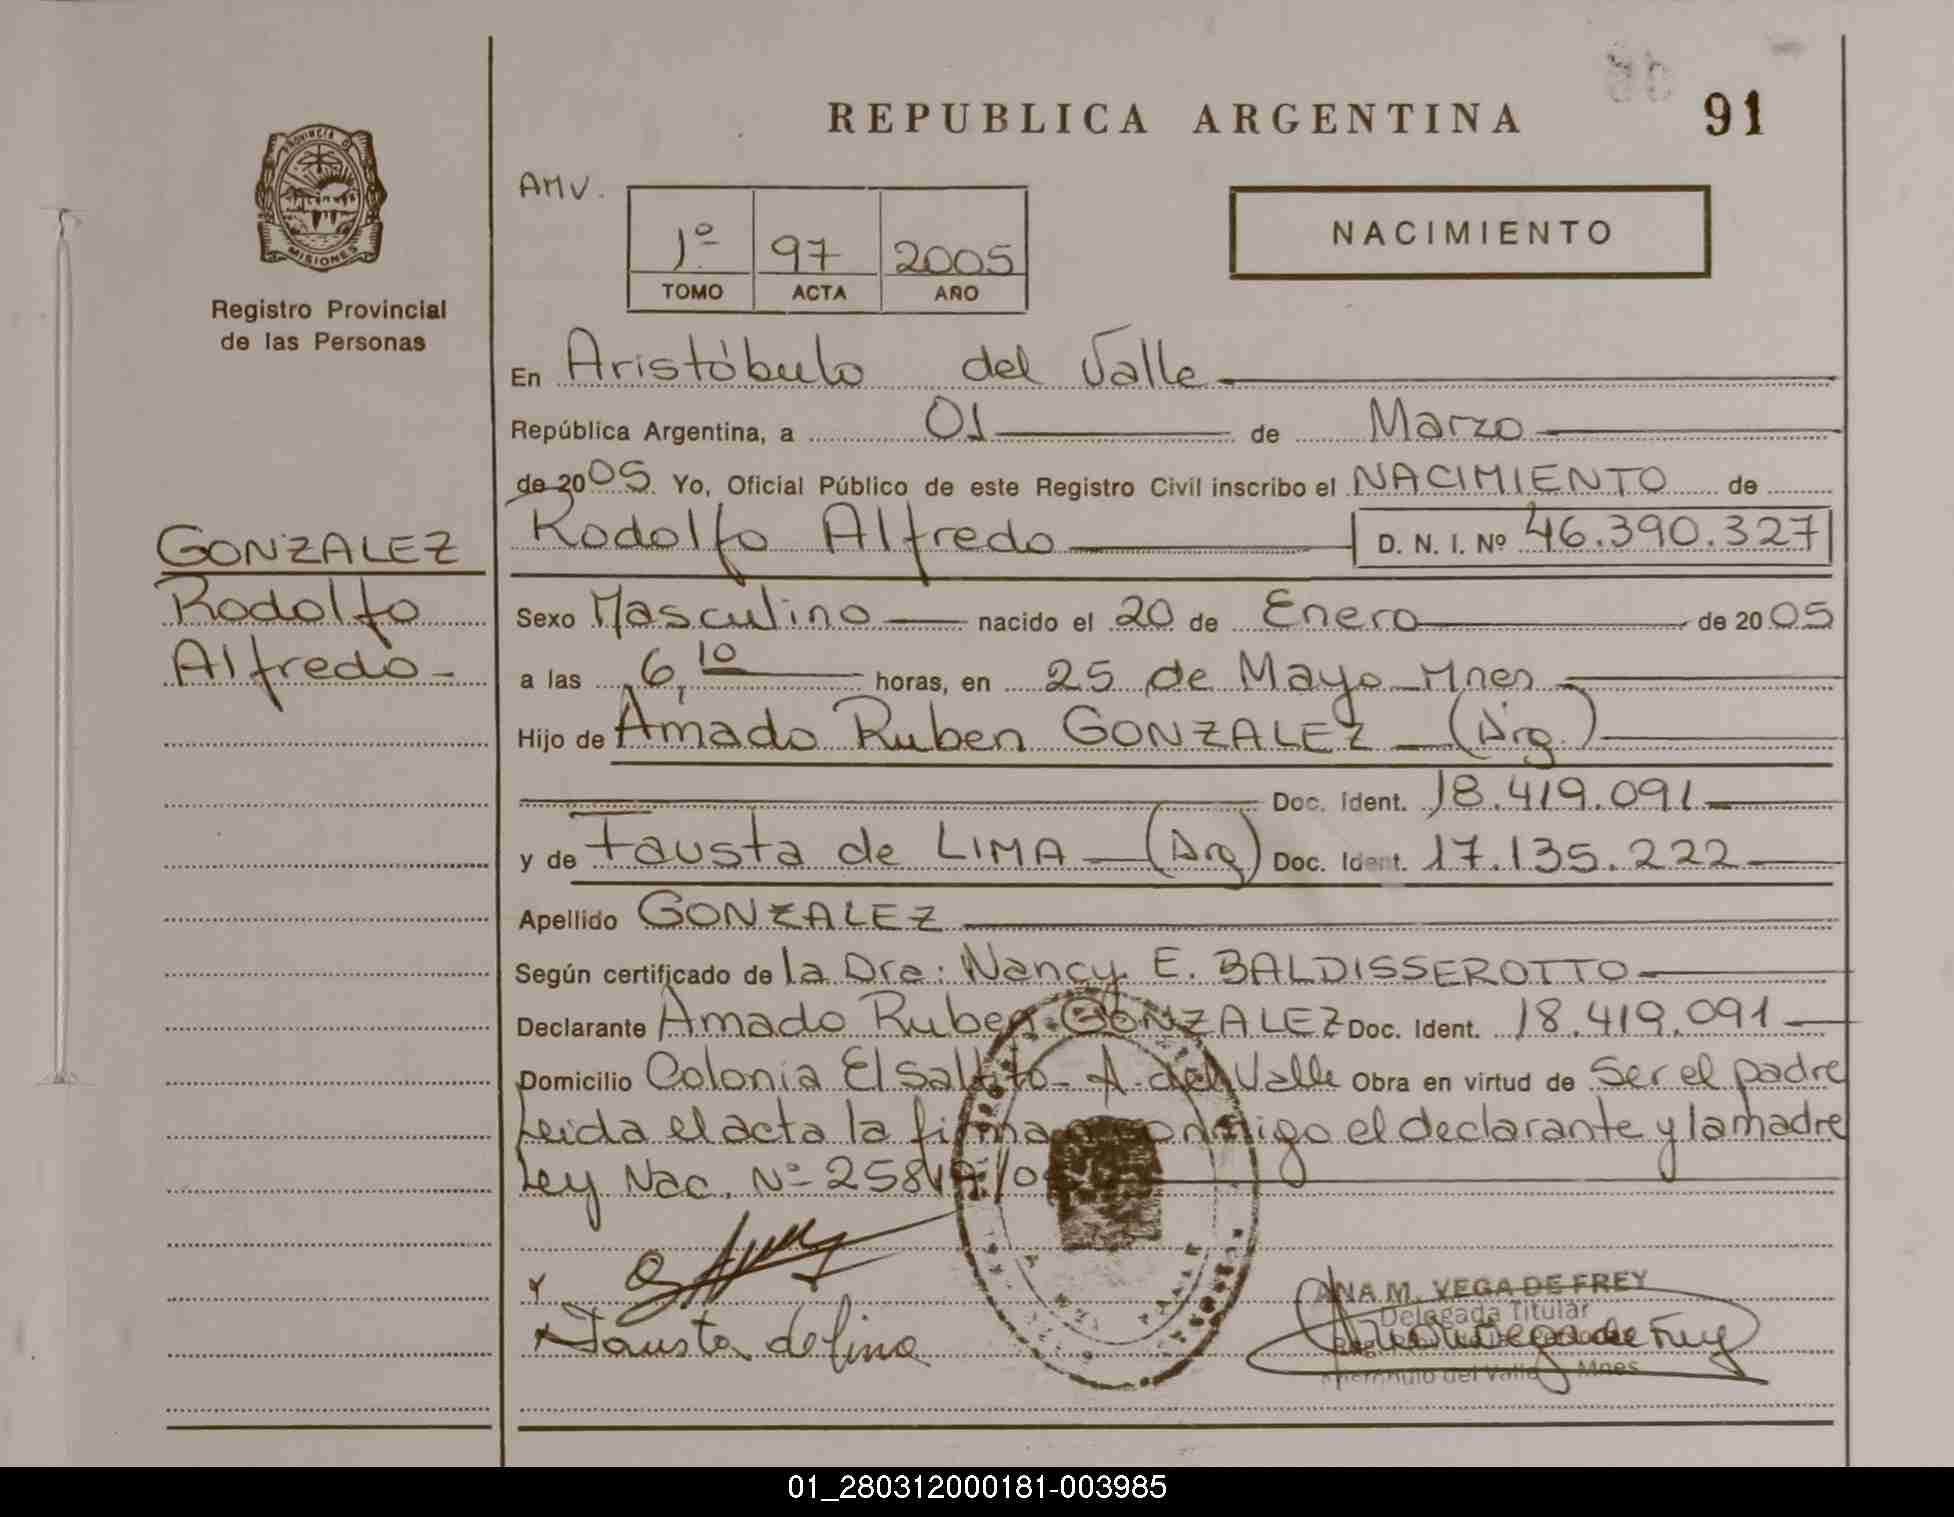 REPUBLICA ARGENTINA 91
PROVINCIA DE
MISIONES
Registro Provincial
de las Personas
GONZALEZ
Rodolfo
Alfredo-
AMV.
1º 97 2005
TOMO ACTA AÑO
NACIMIENTO
En Aristóbulo del Valle
República Argentina, a 01 de Marzo
de 2005. Yo, Oficial Público de este Registro Civil inscribo el NACIMIENTO de
Rodolfo Alfredo D. N. I. Nº 46.390.327
Sexo Masculino nacido el 20 de Enero de 2005
a las 6,10 horas, en 25 de Mayo-Mnes
Hijo de Amado Ruben GONZALEZ (Arg.)
Doc. Ident. 18.419.091
y de Fausta de LIMA (Arg) Doc. Ident. 17.135.222
Apellido GONZALEZ
Según certificado de la Dra: Nancy E. BALDISSEROTTO
Declarante Amado Ruben GONZALEZ Doc. Ident. 18.419.091
Domicilio Colonia El Saltito- A. del Valle Obra en virtud de Ser el padre
Leida el acta la firma conmigo el declarante y la madre
Ley Nac. Nº 25819/
Fausta de lima
ANA M. VEGA DE FREY
Delegada Titular
del Valle - Mnes
01_280312000181-003985